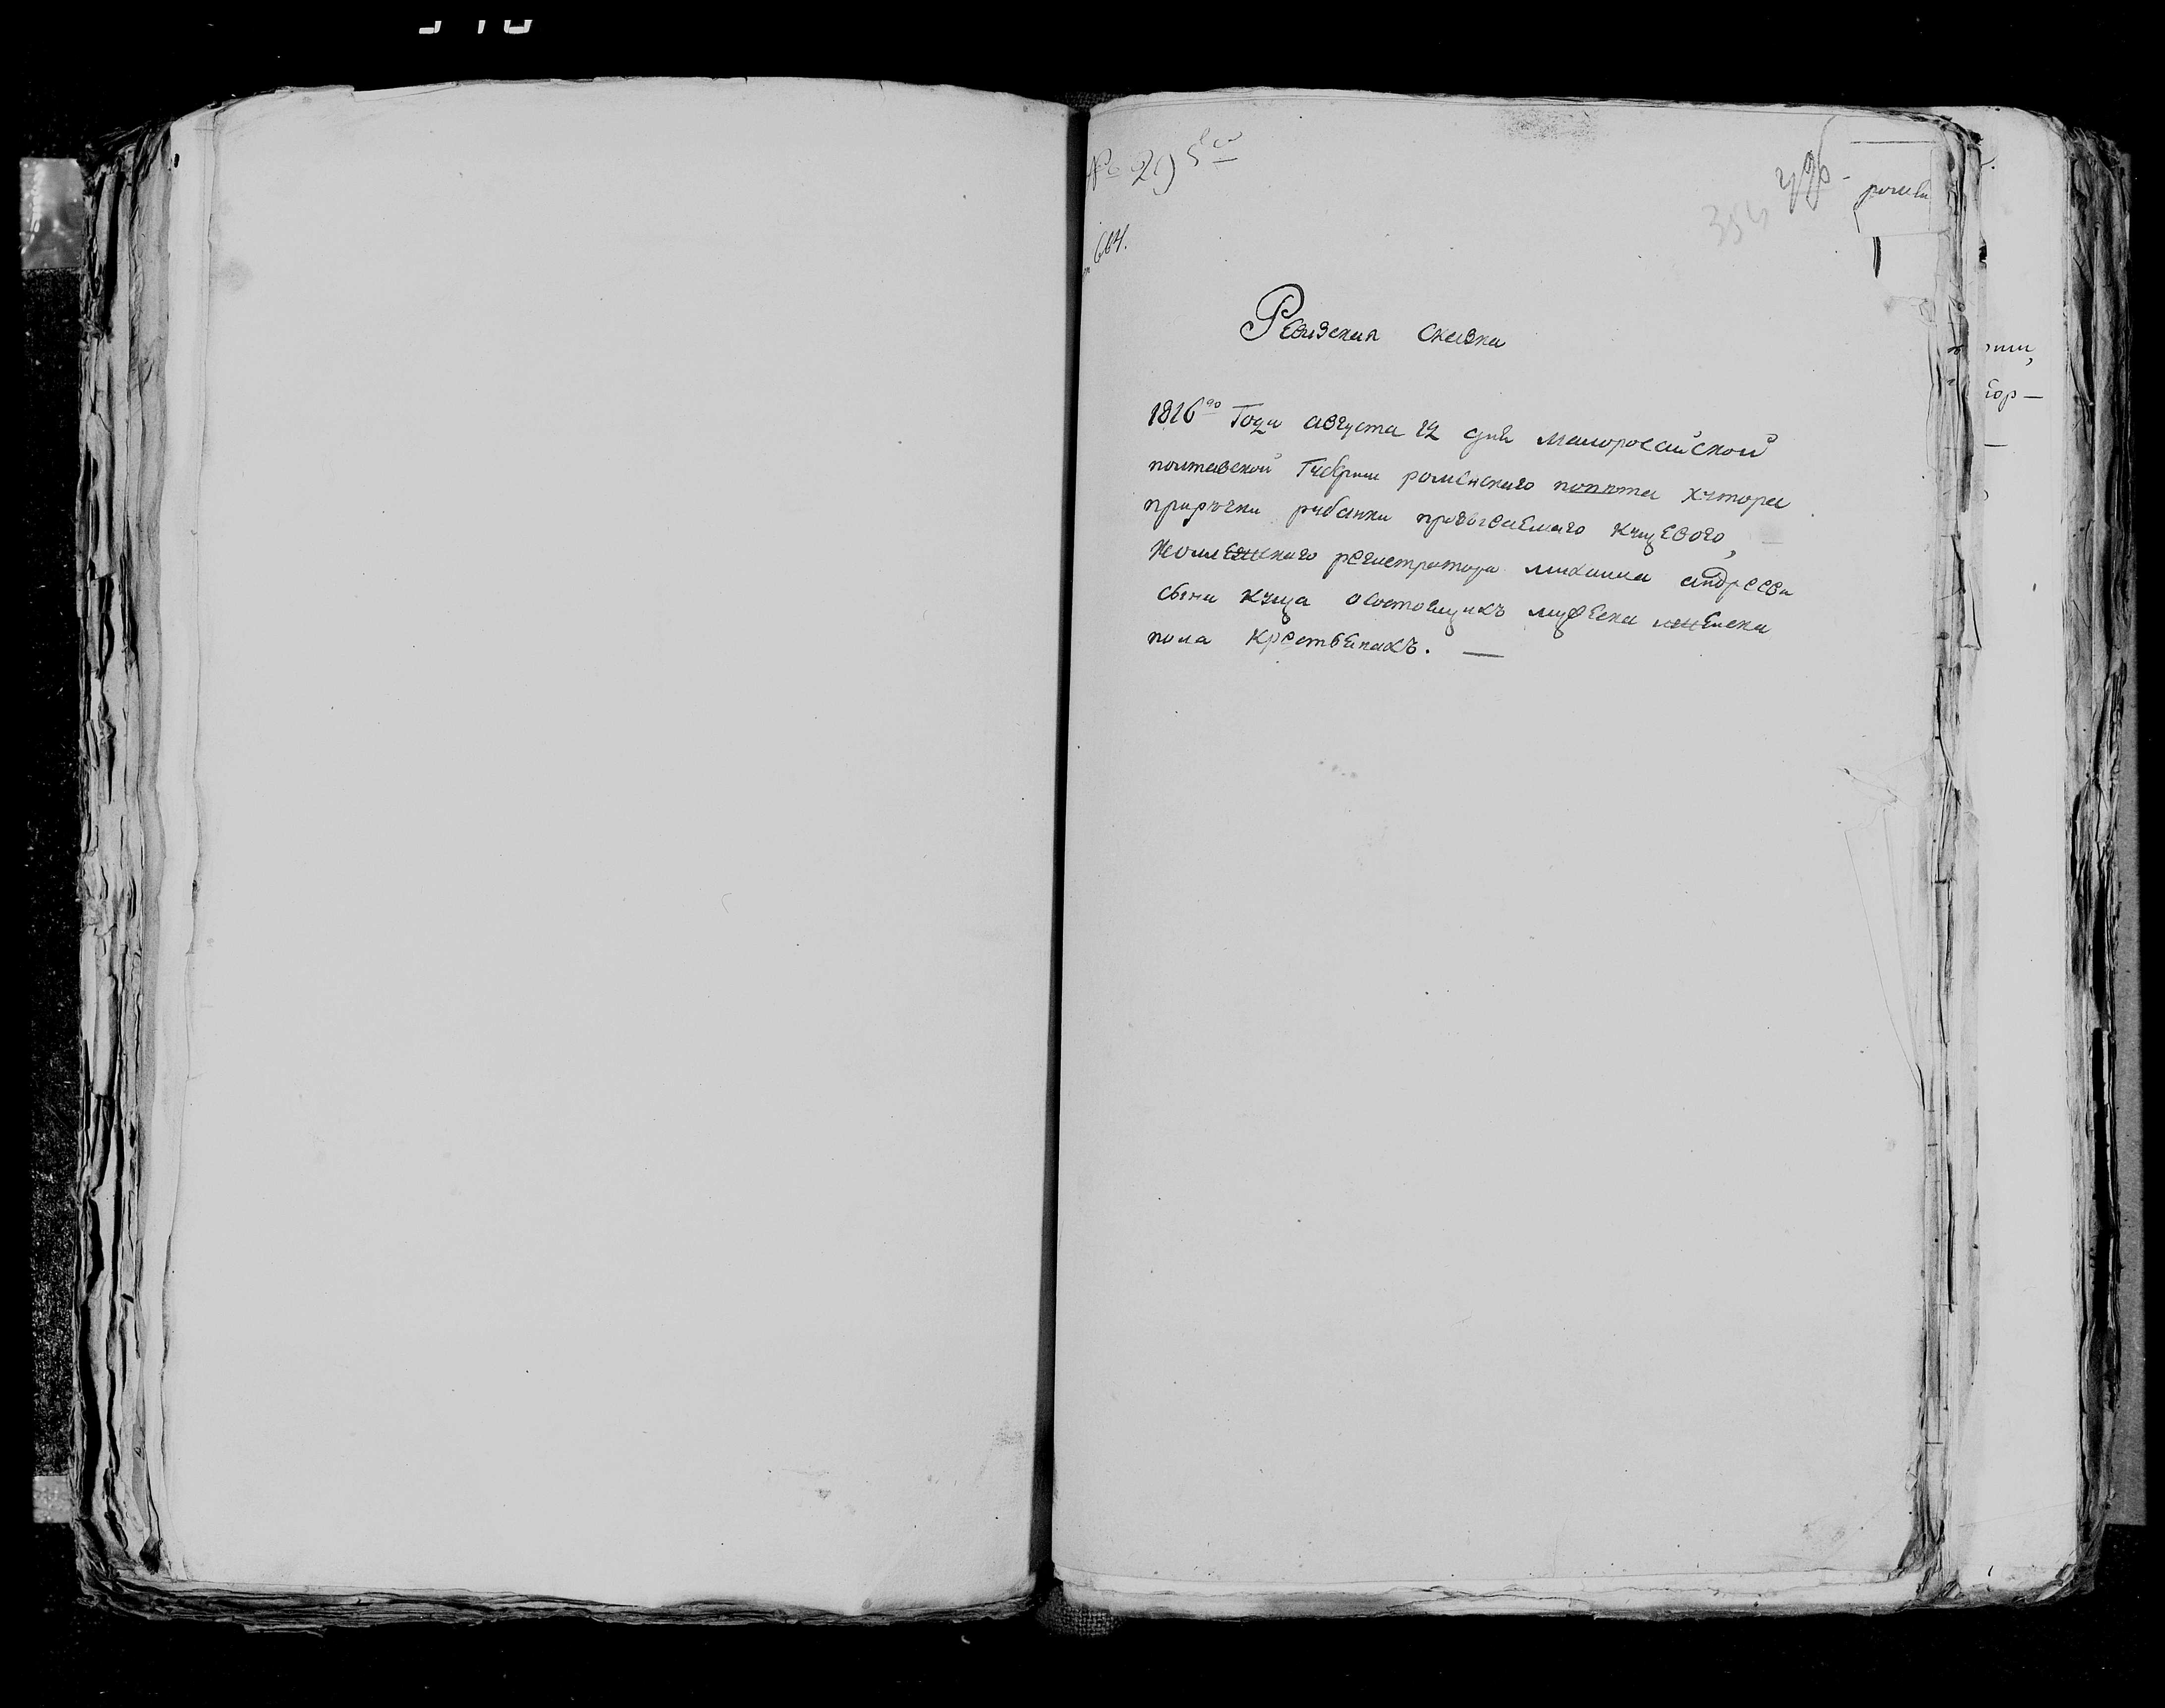 № 295
664.
354
роменс
Ревизская сказка
1816го Года августа 12 дня малоросайской
полтавской Губернии роменского повѣта хутора
прирѣчки рибанки прозываемаго Куцевого,
Колежского регистратора михаила андреева
сына Куца осостоящихъ мужеска иженска
пола Крестьянахъ. —